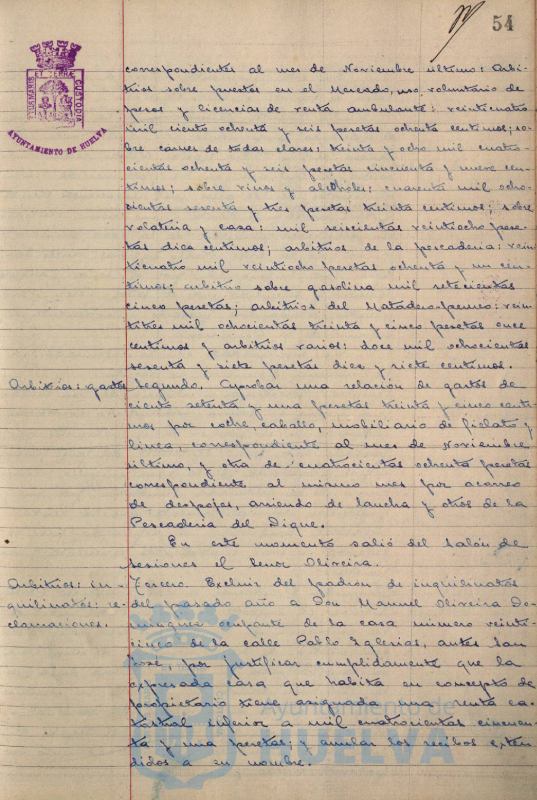 54
PORTUS MARIS ET TERRAE CUSTODIA
AYUNTAMIENTO DE HUELVA
correspondientes al mes de Noviembre último: Arbi-
trios sobre puestos en el Mercado, uso voluntario de
pesas y licencias de venta ambulante: veinticuatro
mil ciento ochenta y seis pesetas ochenta centimos; so-
bre carnes de todas clases: treinta y ocho mil cuatro-
cientas ochenta y seis pesetas cincuenta y nueve cen-
timos; sobre vinos y alcoholes: cuarenta mil ocho-
cientas sesenta y tres pesetas treinta centimos; sobre
volateria y casa: mil seiscientas veintiocho pese-
tas diez centimos; arbitrios de la pescaderia: vein-
ticuatro mil veintiocho pesetas ochenta y un cen-
timos; arbitrio sobre gasolina mil setecientas
cinco pesetas; arbitrios del Matadero-: vein-
titrés mil ochocientas treinta y cinco pesetas once
centimos y arbitrios varios: doce mil ochocientas
sesenta y siete pesetas diez y siete centimos.
Arbitrios: gastos Segundo. Aprobar una relación de gastos de
ciento setenta y una pesetas treinta y cinco centi-
mos por coche, caballo, mobiliario de fielato y
linea, correspondiente al mes de Noviembre
último, y otra de cuatrocientas ochenta pesetas
correspondiente al mismo mes por acarreo
de despojos, arriendo de lancha y otros de la
Pescaderia del Dique.
En este momento salió del Salón de
sesiones el Señor Oliveira.
Arbitrios: in- Tercero. Excluir del padron de inquilinatos
quilinatos: re- del pasado año a Don Manuel Oliveira Do-
clamaciones. minguez ocupante de la casa número veinti-
cinco de la calle Pablo Iglesias, antes San
José, por justificar cumplidamente que la
expresada casa que habita en concepto de
propietario tiene asignada una renta ca-
tastral inferior a mil cuatrocientas cincuen-
ta y una pesetas; y anular los recibos exten-
didos a su nombre.
Ayuntamiento de
HUELVA